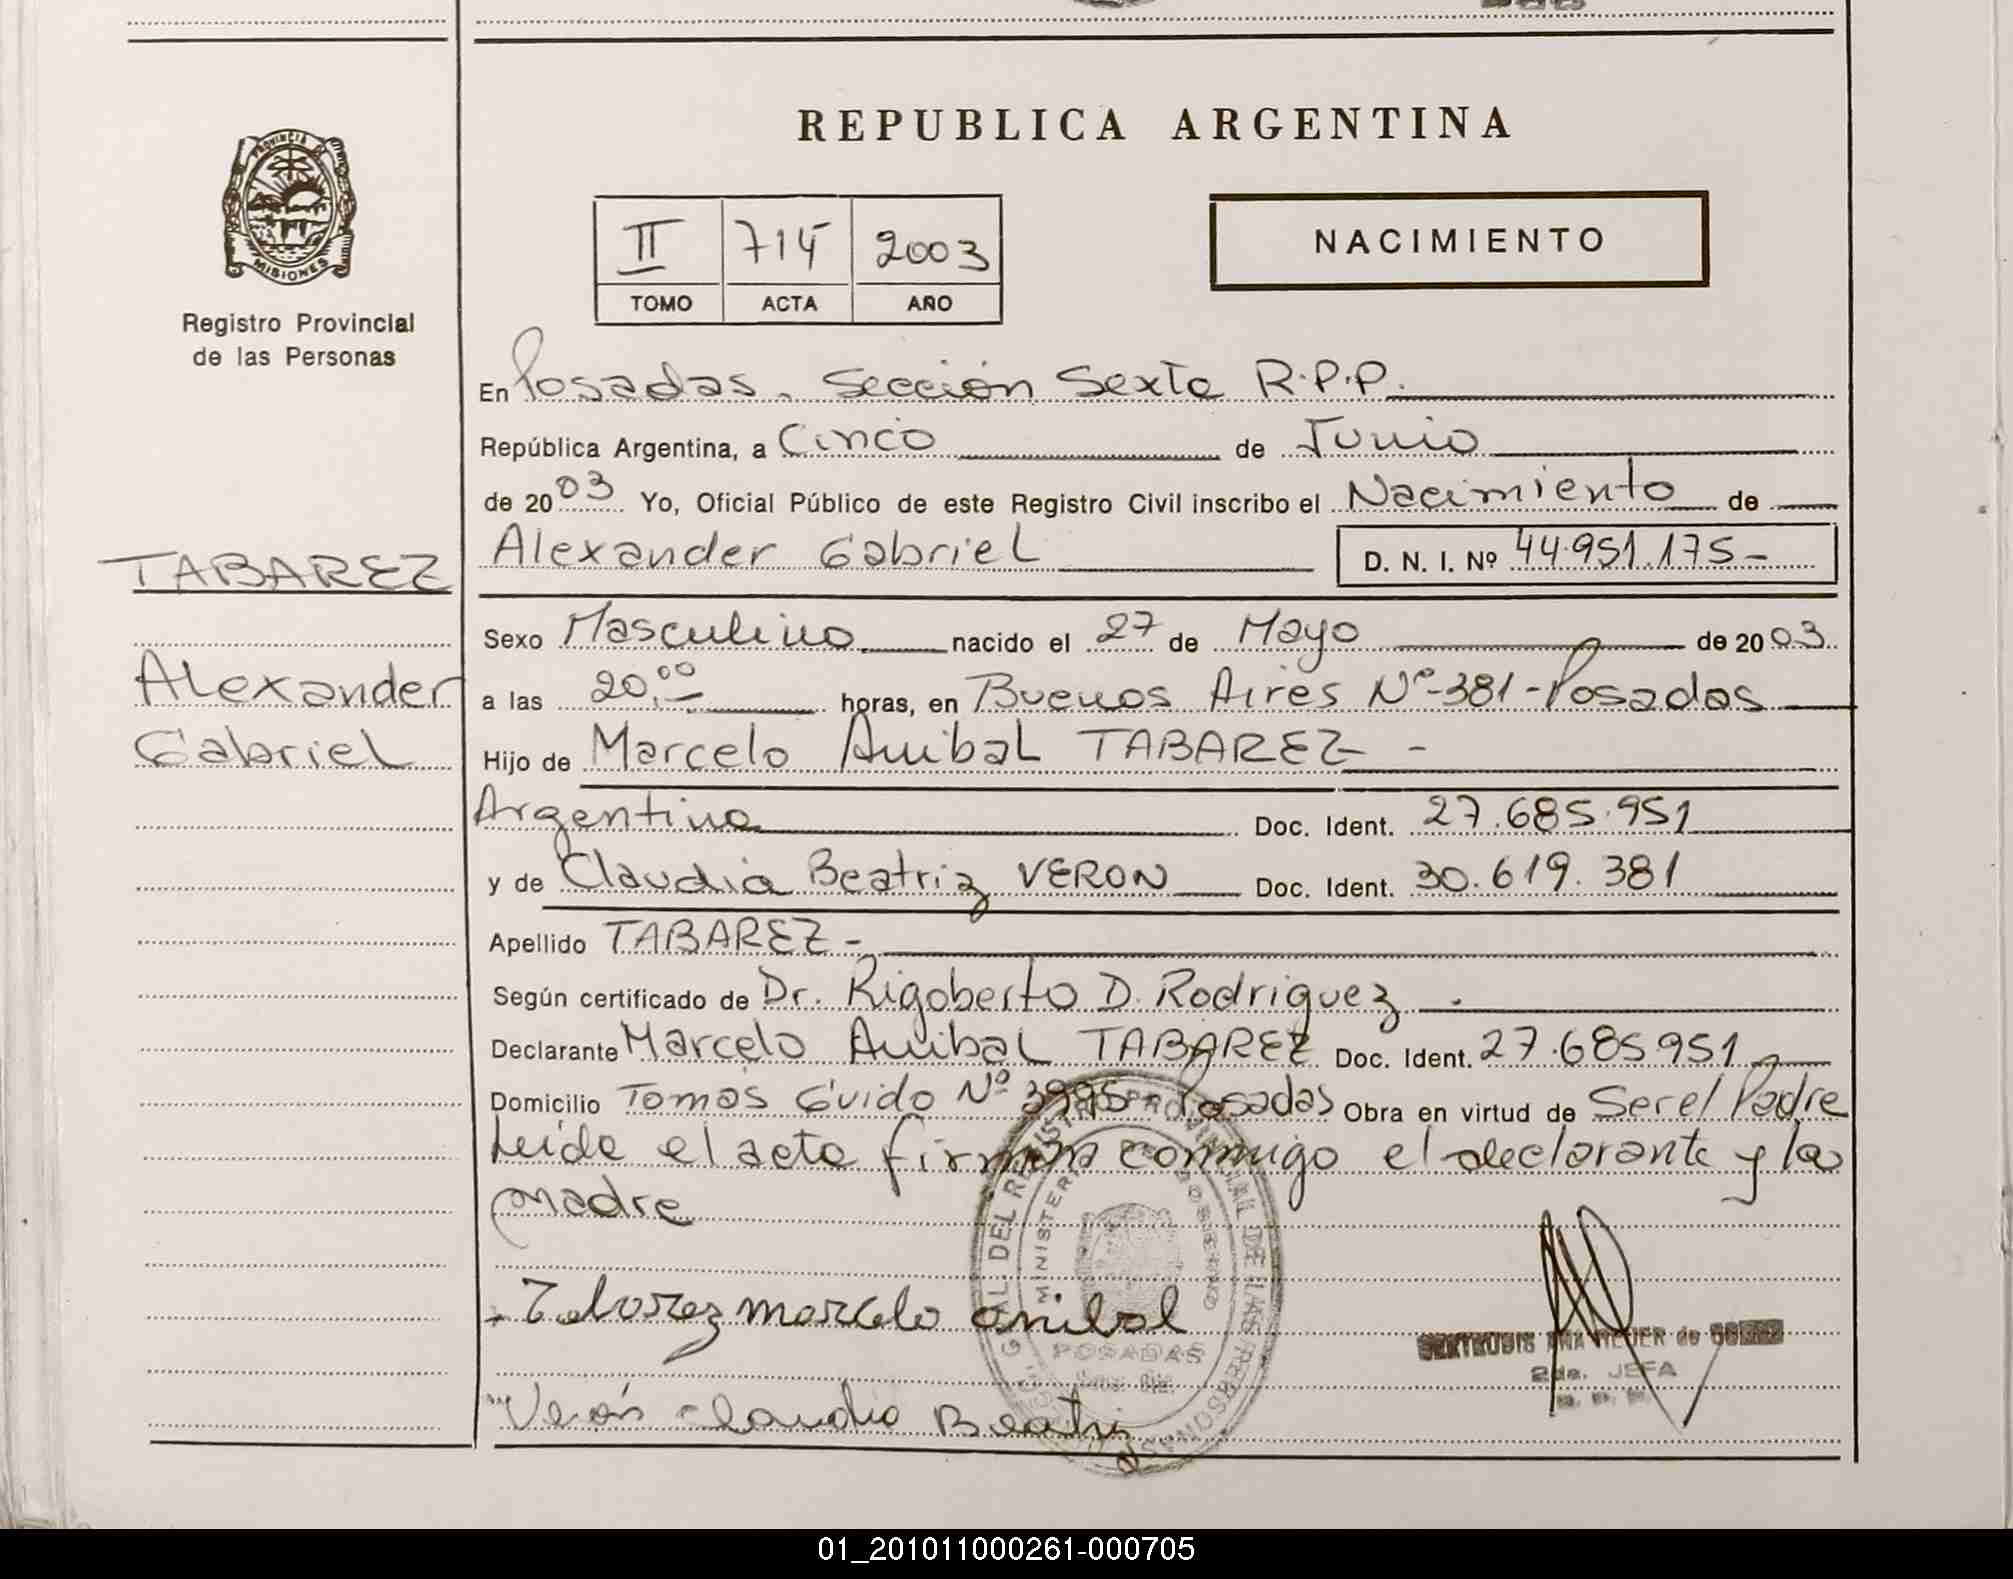 REPUBLICA ARGENTINA
PROVINCIA DE
MISIONES
Registro Provincial
de las Personas
II 714 2003
TOMO ACTA AÑO
NACIMIENTO
En Posadas. Sección Sexta R.P.P.
República Argentina, a Cinco de Junio
de 2003 Yo, Oficial Público de este Registro Civil inscribo el Nacimiento de
Alexander Gabriel D. N. I. Nº 44.951.175-
TABAREZ
Alexander
Gabriel
Sexo Masculino nacido el 27 de Mayo de 2003
a las 20.00 horas, en Buenos Aires Nº-381-Posadas
Hijo de Marcelo Anibal TABAREZ -
Argentina Doc. Ident. 27.685.951
y de Claudia Beatriz VERON Doc. Ident. 30.619.381
Apellido TABAREZ-
Según certificado de Dr. Rigoberto D. Rodriguez
Declarante Marcelo Anibal TABAREZ Doc. Ident. 27.685951
Domicilio Tomás Guido Nº 3995 - Posadas Obra en virtud de Ser el Padre
Leída el acta firman conmigo el declarante y la
madre
Tabarez marcelo anibal
Verón Claudia Beatri
POSADAS
GERTRUDIS ANA de
2da. JEFA
01_201011000261-000705